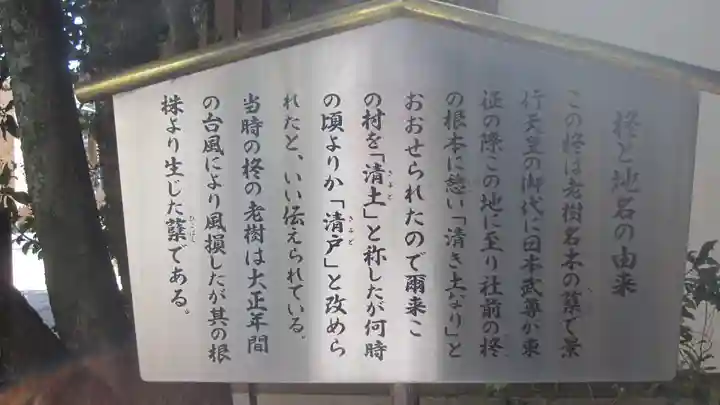 柊と地名の由来
この柊は老樹名木の蘖で景
行天皇の御代に日本武尊が東
征の際この地に至り社前の柊
の根本に憩い「清き土なり」と
おおせられたので爾来こ
の村を「清土」と称したが何時
きよど
の頃よりか「清戸」と改めら
きよど
れたと、いい伝えられている。
当時の柊の老樹は大正年間
の台風により風損したが其の根
株より生じた蘖である。
ひこばえ